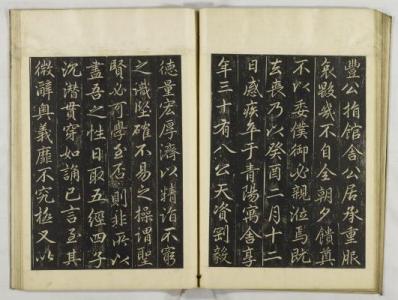 豐公指館舍公居承重服
哀毀幾不自全朝夕饋奠
不以委僕御必親涖焉既
玄喪乃以癸酉二月十二
日感疾卒于青陽寓舍享
年三十有八公天資剛毅
德量宏厚濟以精詣不窮
之識堅確不易之操謂聖
賢必可學至否則非所以
盡吾之性日取五經四子
沉潛貫穿如誦已言至其
微辭奧義靡不究極又以